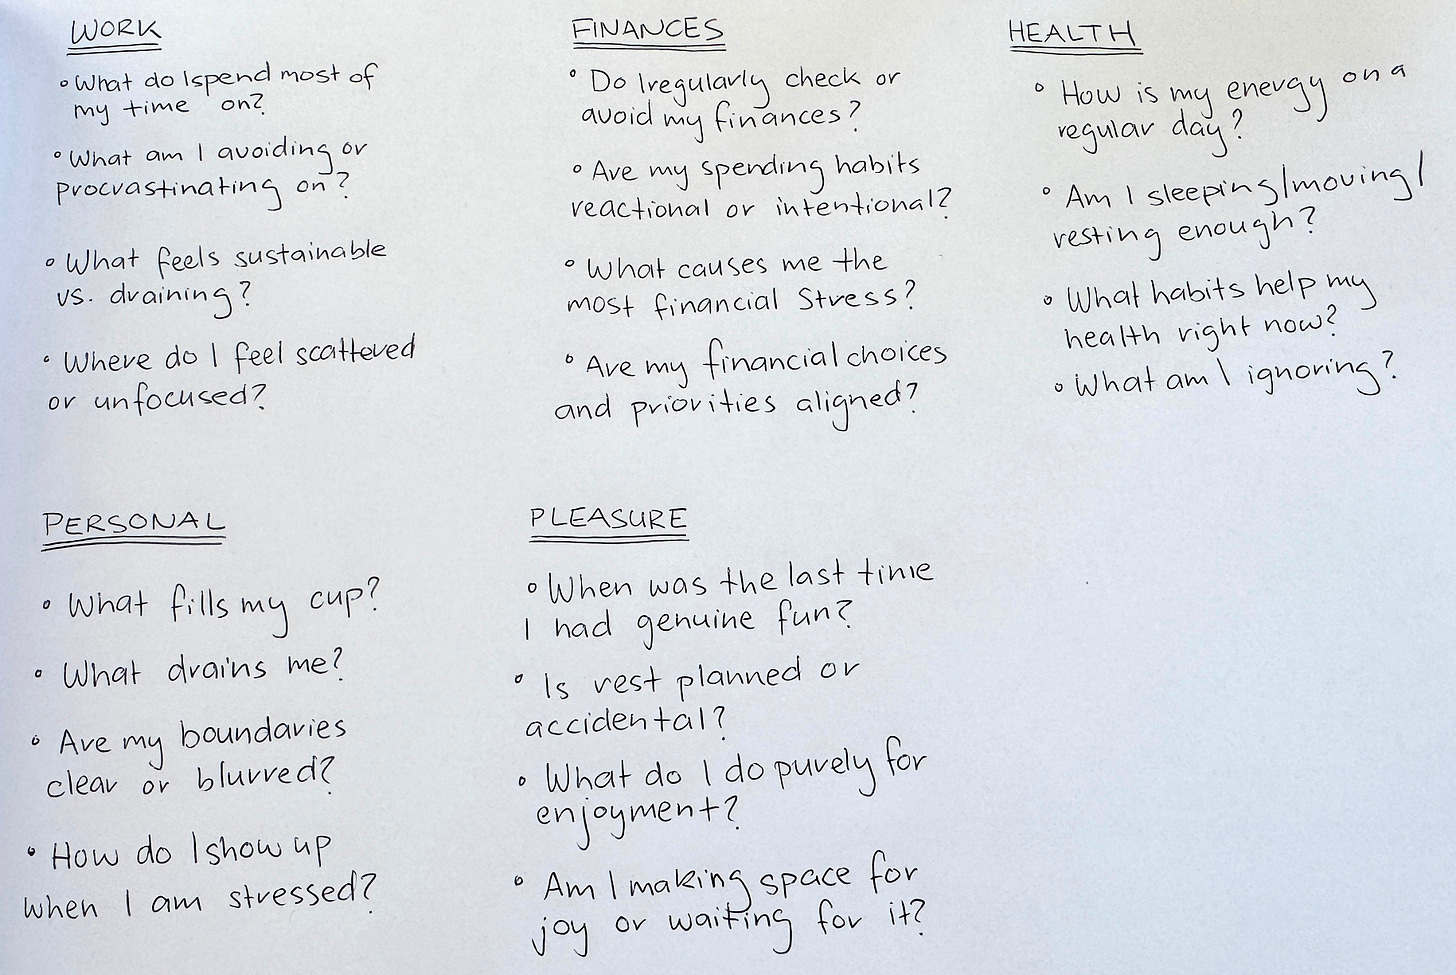 WORK
◦ What do I spend most of
my time on?
◦ What am I avoiding or
procrastinating on?
◦ What feels sustainable
vs. draining?
◦ Where do I feel scattered
or unfocused?
FINANCES
◦ Do I regularly check or
avoid my finances?
◦ Are my spending habits
reactional or intentional?
◦ What causes me the
most financial Stress?
◦ Are my financial choices
and priorities aligned?
HEALTH
◦ How is my energy on a
regular day?
◦ Am I sleeping/moving/
resting enough?
◦ What habits help my
health right now?
◦ What am I ignoring?
PERSONAL
◦ What fills my cup?
◦ What drains me?
◦ Are my boundaries
clear or blurred?
◦ How do I show up
when I am stressed?
PLEASURE
◦ When was the last time
I had genuine fun?
◦ Is rest planned or
accidental?
◦ What do I do purely for
enjoyment?
◦ Am I making space for
joy or waiting for it?